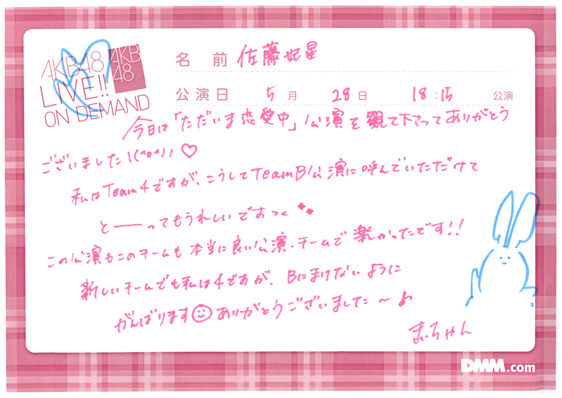 AKB48
LIVE!!
ON DEMAND
AKB
48
名 前 佐藤妃星
公演日 5月 28日 18:15 公演
今日は「ただいま恋愛中」公演を観て下さってありがとう
ございました!(^o^)♡
私はTeam4ですが、こうしてTeamB公演に呼んでいただけて
と──ってもうれしいですっ
この公演もこのチームも本当に良い公演、チームで楽しかったです!!
新しいチームでも私は4ですが、Bにまけないように
がんばります☺ありがとうございました〜♪
きぃちゃん
DMM.com